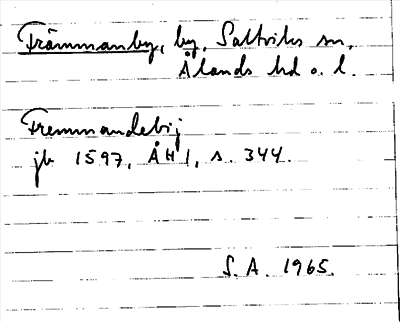 Främmanby, by, Saltviks sn,
Ålands hd o. l.
Fremmandebij
jb 1597, ÅH 1, s. 344.
S. A. 1965.